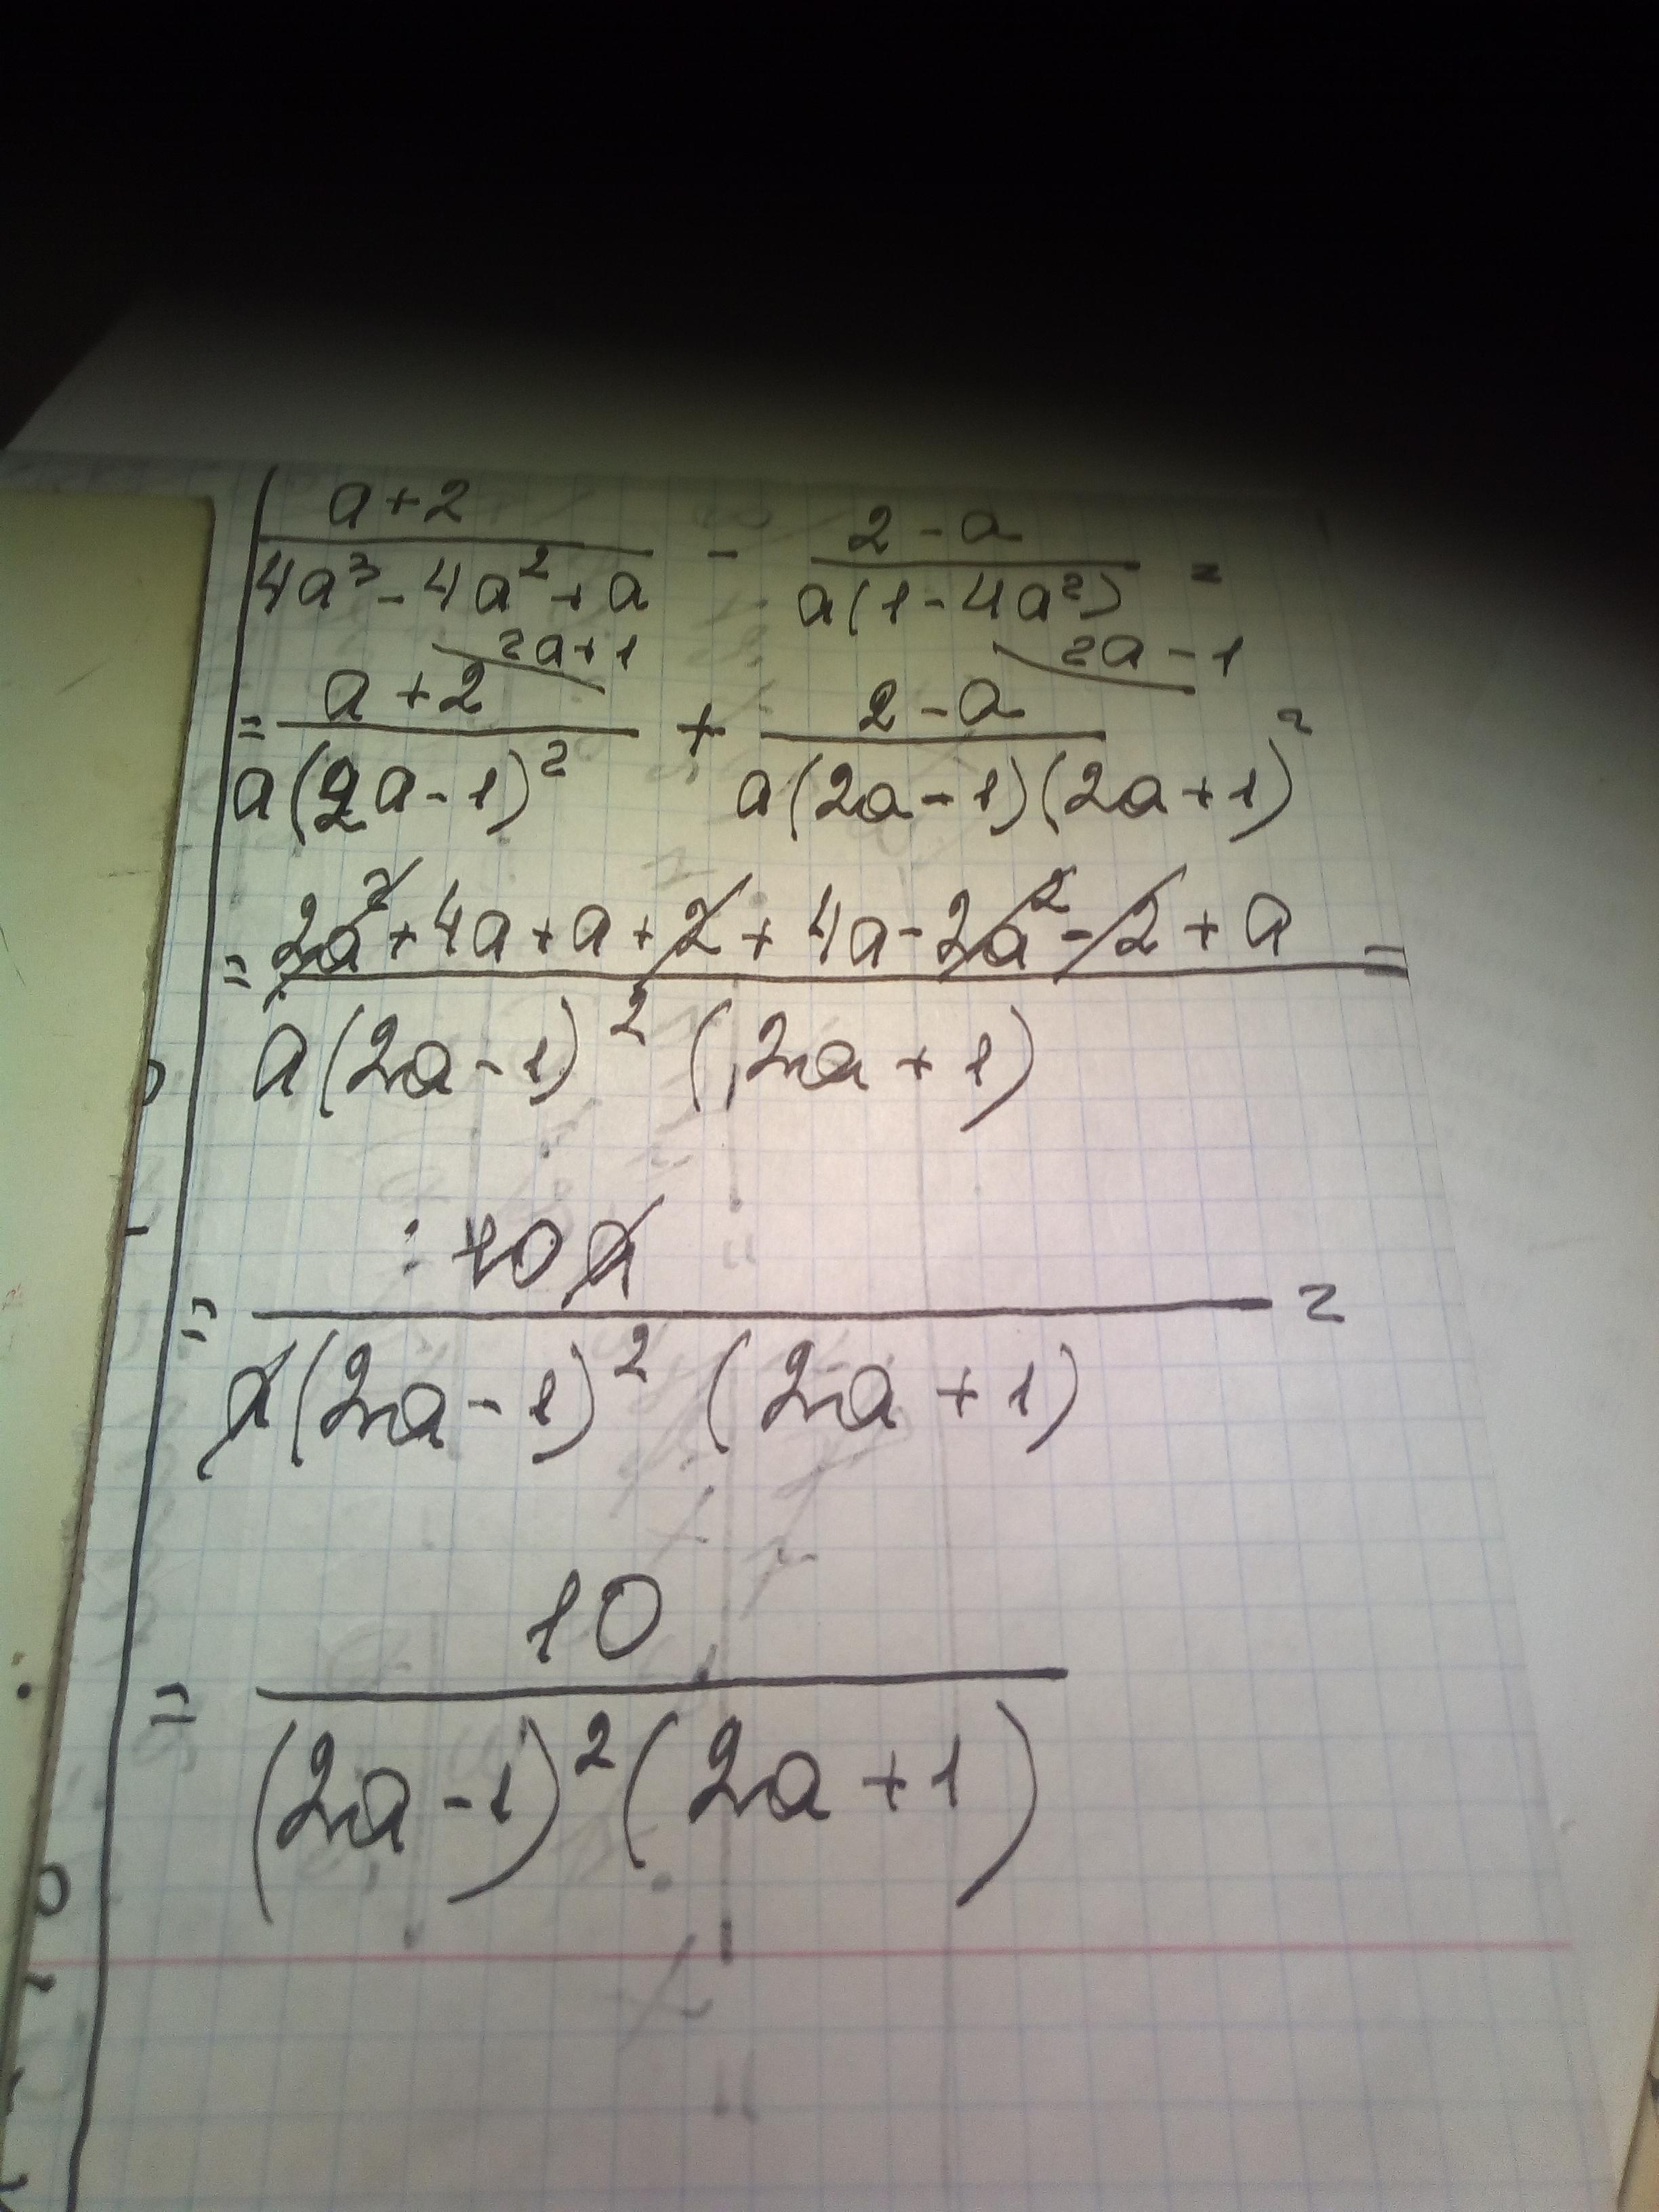 (a+2)/(4a³-4a²+a) - (2-a)/(a(1-4a²)) =
= (a+2)\2a+1/(a(2a-1)²) + (2-a)\2a-1/(a(2a-1)(2a+1)) =
= (2a²+4a+a+2+4a-2a²-2+a)/(a(2a-1)²(2a+1)) =
= 10a/(a(2a-1)²(2a+1)) =
= 10/((2a-1)²(2a+1))